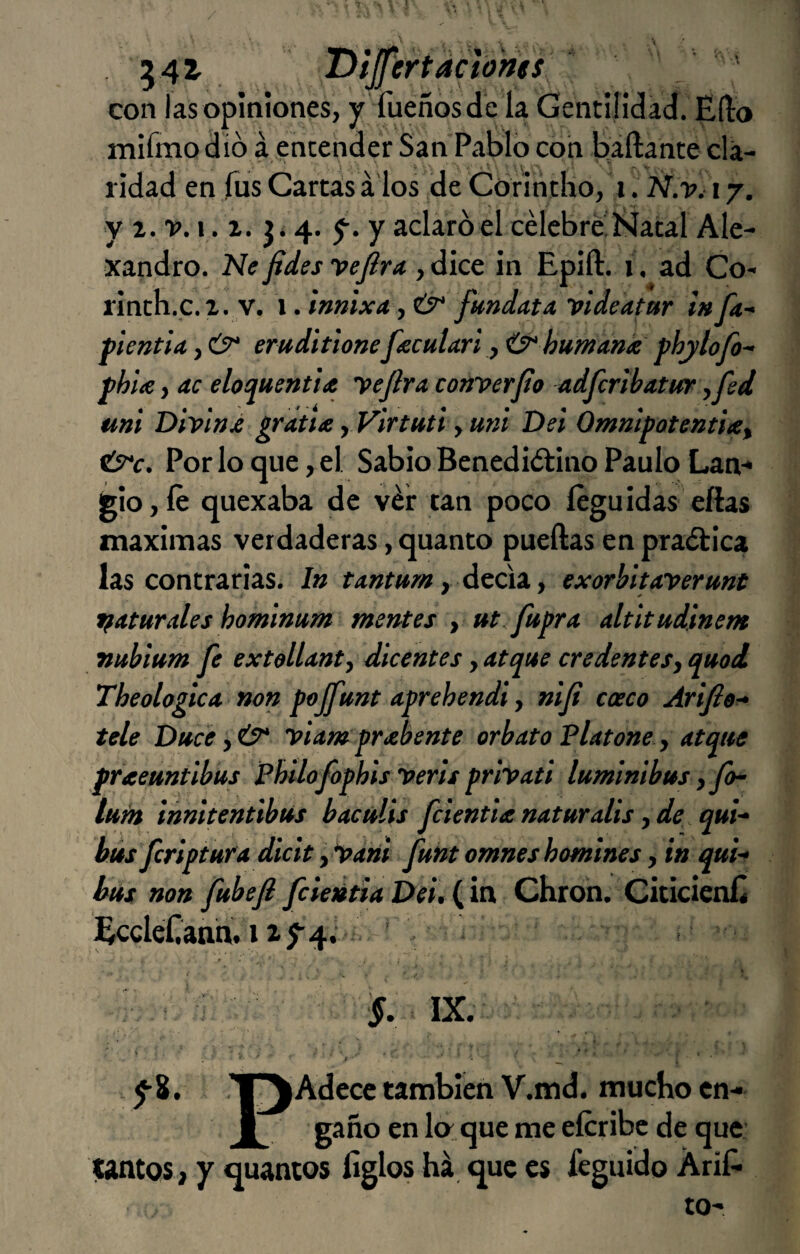 342 Diſſertaciones
con las opiniones, y ſueños de la Gentilidad. Eſto
miſmo diò à entender San Pablo con baſtante cla-
ridad en ſus Cartas à los de Corintho, 1. N.v. 17.
y 2. v. 1. 2. 3. 4. 5. y aclarò el cèlebre Natal Ale-
xandro. Ne fides veſtra, dice in Epiſt. 1. ad Co-
rinth.c.2. v. 1. innixa, & fundata videatur in ſa-
pientia, & eruditione ſæculari, & humanæ phyloſo-
phiæ, ac eloquentiæ veſtra converſio adſcribatur, ſed
uni Divinæ gratiæ, Virtuti, uni Dei Omnipotentiæ,
&c. Por lo que, el Sabio Benedictino Paulo Lan-
gio, ſe quexaba de vèr tan poco ſeguidas eſtas
maximas verdaderas, quanto pueſtas en practica
las contrarias. In tantum, decìa, exorbitaverunt
naturales hominum mentes, ut ſupra altitudinem
nubium ſe extollant, dicentes, atque credentes, quod
Theologica non poſſunt aprehendi, niſi cœco Ariſto-
tele Duce, & viam præbente orbato Platone, atque
præeuntibus Philoſophis veris privati luminibus, ſo-
lum innitentibus baculis ſcientiæ naturalis, de qui-
bus ſcriptura dicit, vani ſunt omnes homines, in qui-
bus non ſubeſt ſcientia Dei. (in Chron. Citicienſ.
Eccleſ. ann. 1254.
§. IX.
58. PAdece tambien V.md. mucho en-
gaño en lo que me eſcribe de que
tantos, y quantos ſiglos hà que es ſeguido Ariſ-
to-